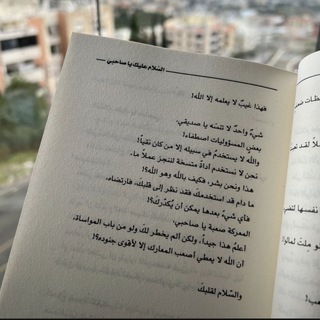 السّلام عليك يا صاحبي
فهذا غيبٌ لا يعلمه إلا الله!
شيءٌ واحدٌ لا تنسَه يا صديقي،
بعض المسؤوليات اصطفاء!
والله لا يستخدمُ في سبيله إلا من كان نقياً!
نحن لا نستخدم أداةً متسخة لننجز عملاً ما،
هذا ونحن بشر، فكيف بالله وهو الله؟!
ما دام قد استخدمكَ فقد نظر إلى قلبكَ، فارتضاه،
فأي شيءٍ بعدها يمكن أن يُكدّرك؟!
المعركة صعبة يا صاحبي،
أعلمُ هذا جيداً، ولكن ألم يخطر لكَ ولو من باب المواساة،
أن الله لا يعطي أصعب المعارك إلا لأقوى جنوده؟!
والسّلام لقلبكَ